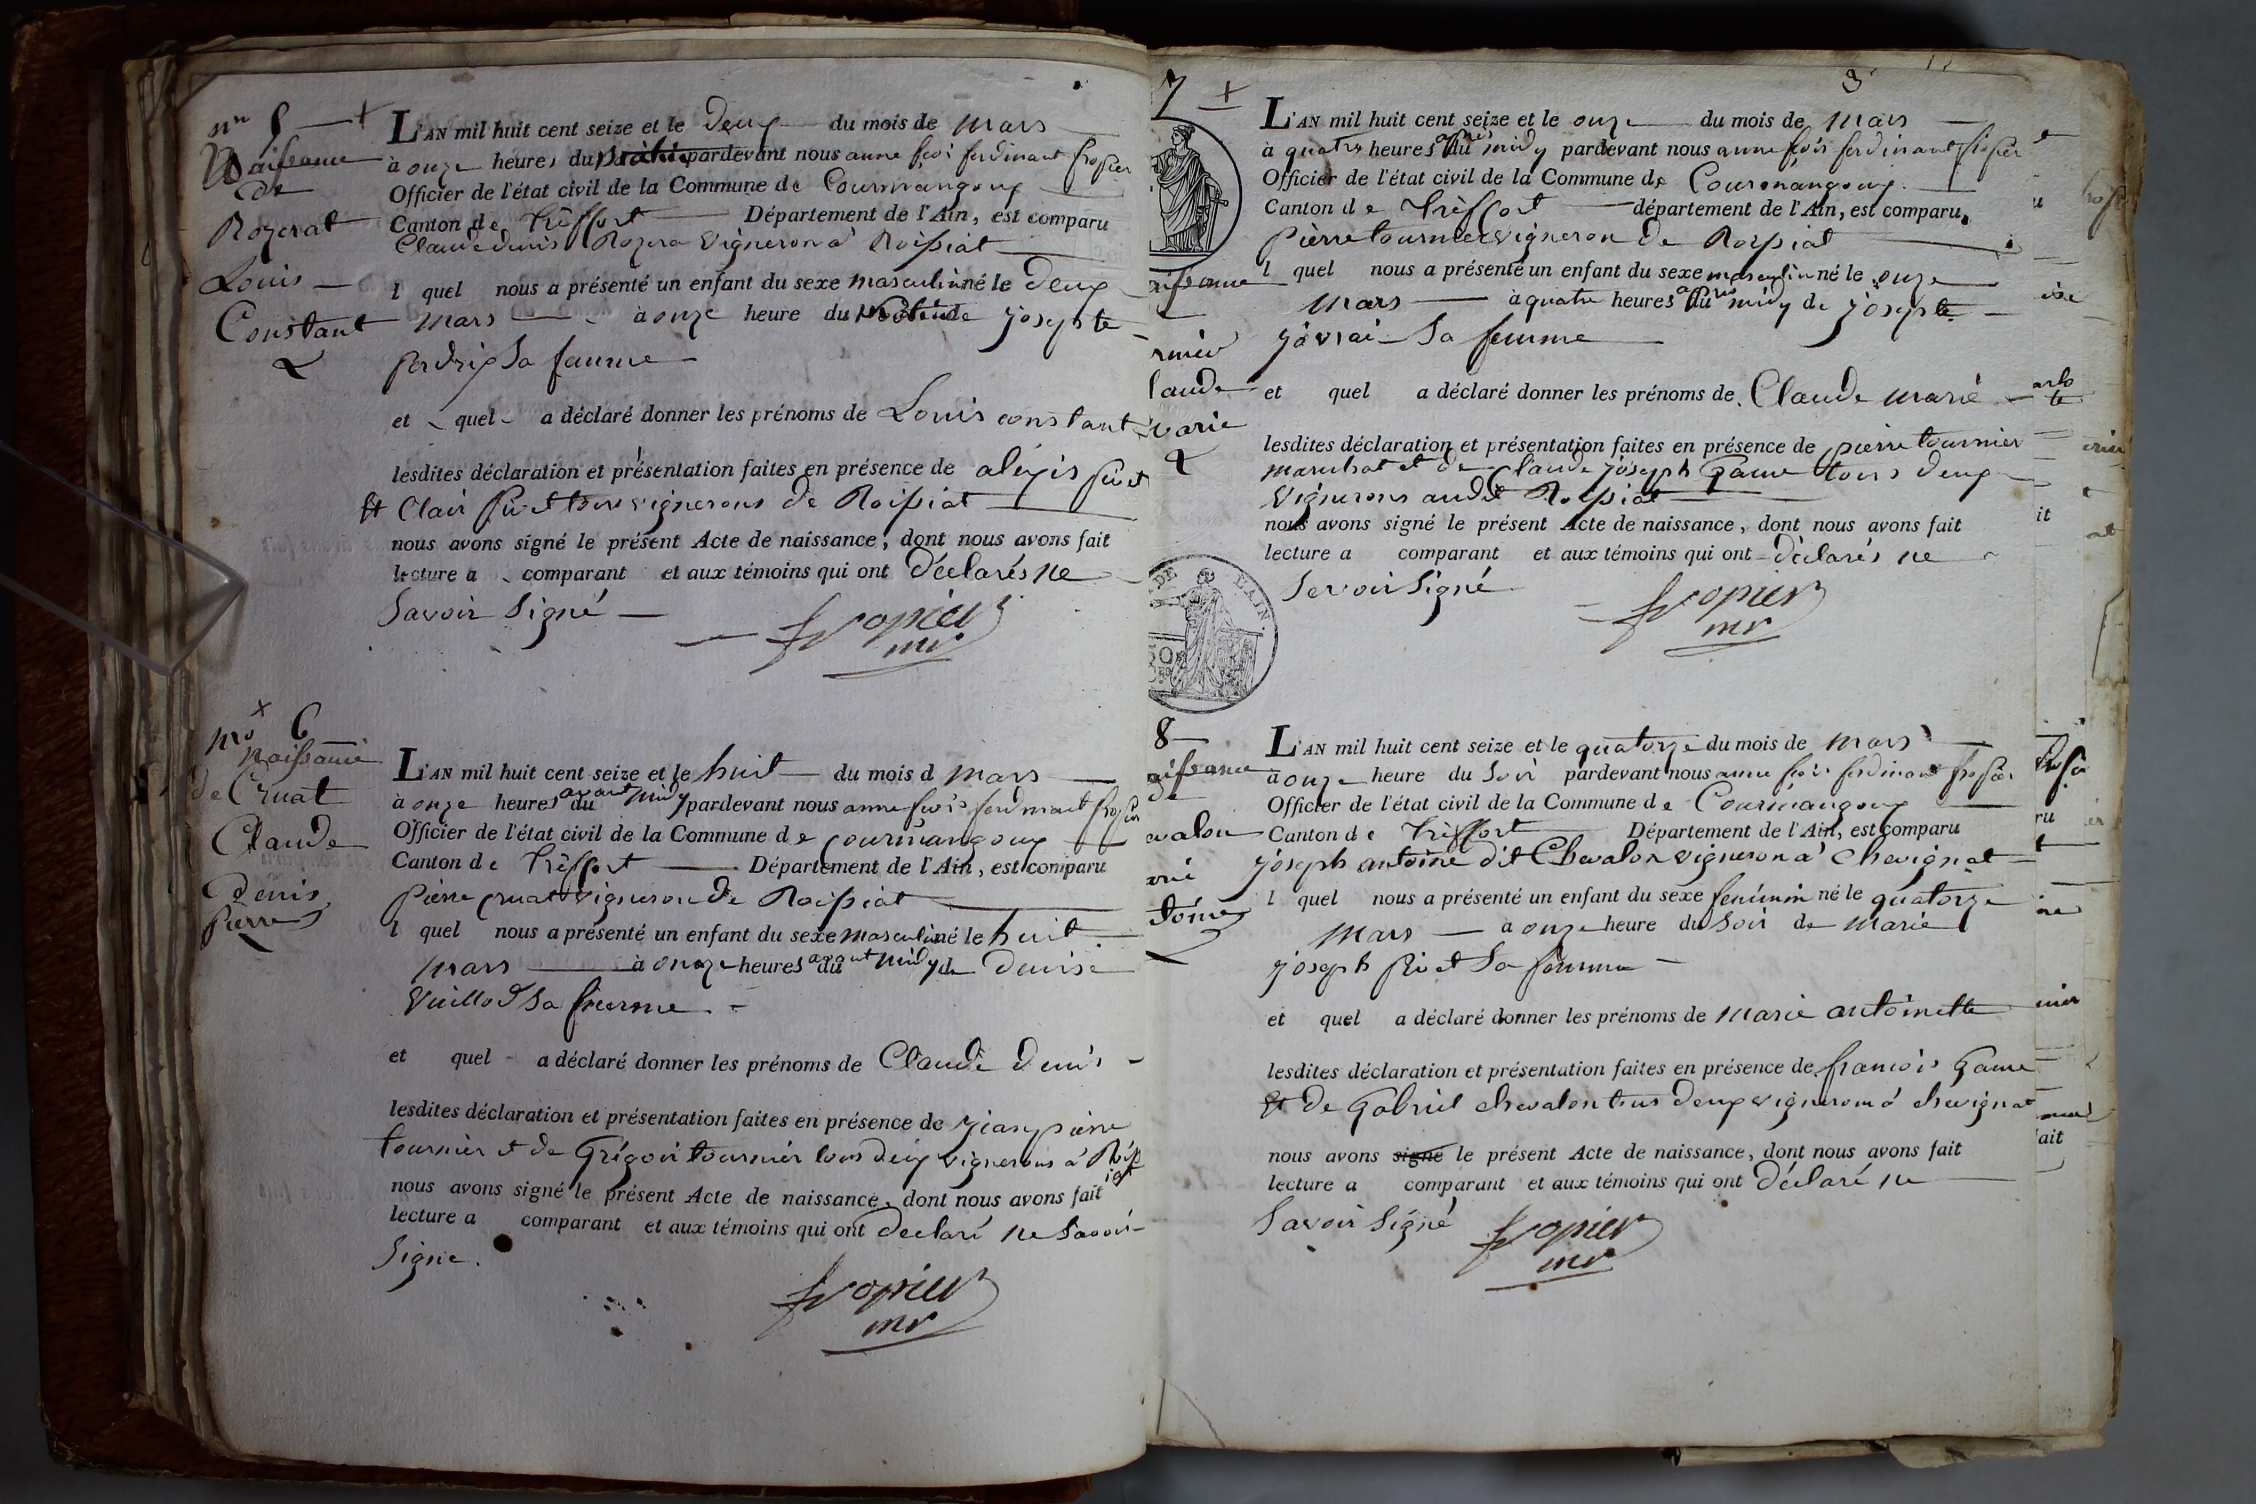 nro 5 +
Naissance
de
Rozerat
Louis
Constant
L'AN mil huit cent seize et le deux du mois de mars
à onze heures du pardevant nous anne fcois ferdinant fropier
Officier de l'état civil de la Commune de Courmangoux
Canton de Trèffort Département de l'Ain, est comparu
Claude denis Rozera vigneron à Roissiat
l quel nous a présenté un enfant du sexe masculin né le deux
mars à onze heure du de josephte
perdrix sa femme
et quel a déclaré donner les prénoms de Louis constant
lesdites déclaration et présentation faites en présence de aléxis pivet
et Clair pivet tous vignerons de Roissiat
nous avons signé le présent Acte de naissance, dont nous avons fait
lecture a comparant et aux témoins qui ont déclarés ne
savoir signé
fropier
mr
nro 6
naissance
de Cruat
Claude
denis
pierre
L'AN mil huit cent seize et le huit du mois d mars
à onze heures du avant midy pardevant nous anne fcois ferdinant fropier
Officier de l'état civil de la Commune de Courmangoux
Canton de Trèffort Département de l'Ain, est comparu
pierre Cruat vigneron de Roissiat
l quel nous a présenté un enfant du sexe masculin né le huit
mars à onze heures du avant midy de denise
Vuillod sa femme
et quel a déclaré donner les prénoms de Claude denis
lesdites déclaration et présentation faites en présence de jean pierre
tournier et de Grégoir tournier tous deux vignerons à Roissiat
nous avons signé le présent Acte de naissance, dont nous avons fait
lecture a comparant et aux témoins qui ont declaré ne savoir
signe.
fropier
mr
3
7 +
L'AN mil huit cent seize et le onze du mois de mars
à quatre heures du après midy pardevant nous anne fcois ferdinant fropier
Officier de l'état civil de la Commune de Courmangoux
Canton de Trèffort département de l'Ain, est comparu
pierre tournier vigneron de Roissiat
l quel nous a présenté un enfant du sexe masculin né le onze
mars à quatre heures du après midy de josephte
sa femme
et quel a déclaré donner les prénoms de Claude marie
lesdites déclaration et présentation faites en présence de pierre tournier
marechat et de Claude joseph Game tous deux
vignerons audit Roissiat
nous avons signé le présent Acte de naissance, dont nous avons fait
lecture a comparant et aux témoins qui ont déclarés ne
savoir signé
fropier
mr
DE L'AIN.
8
L'AN mil huit cent seize et le quatorze du mois de mars
à onze heure du soir pardevant nous anne fcois ferdinant fropier
Officier de l'état civil de la Commune de Courmangoux
Canton de Trèffort Département de l'Ain, est comparu
joseph antoine dit Chevalon vigneron à chevignat
l quel nous a présenté un enfant du sexe feminin né le quatorze
mars à onze heure du soir de marie
joseph pivet sa femme
et quel a déclaré donner les prénoms de marie antoinette
lesdites déclaration et présentation faites en présence de francois Game
et de Gabriel chevalon tous deux vignerons à chevignat
nous avons signé le présent Acte de naissance, dont nous avons fait
lecture a comparant et aux témoins qui ont déclaré ne
savoir signé
fropier
mr